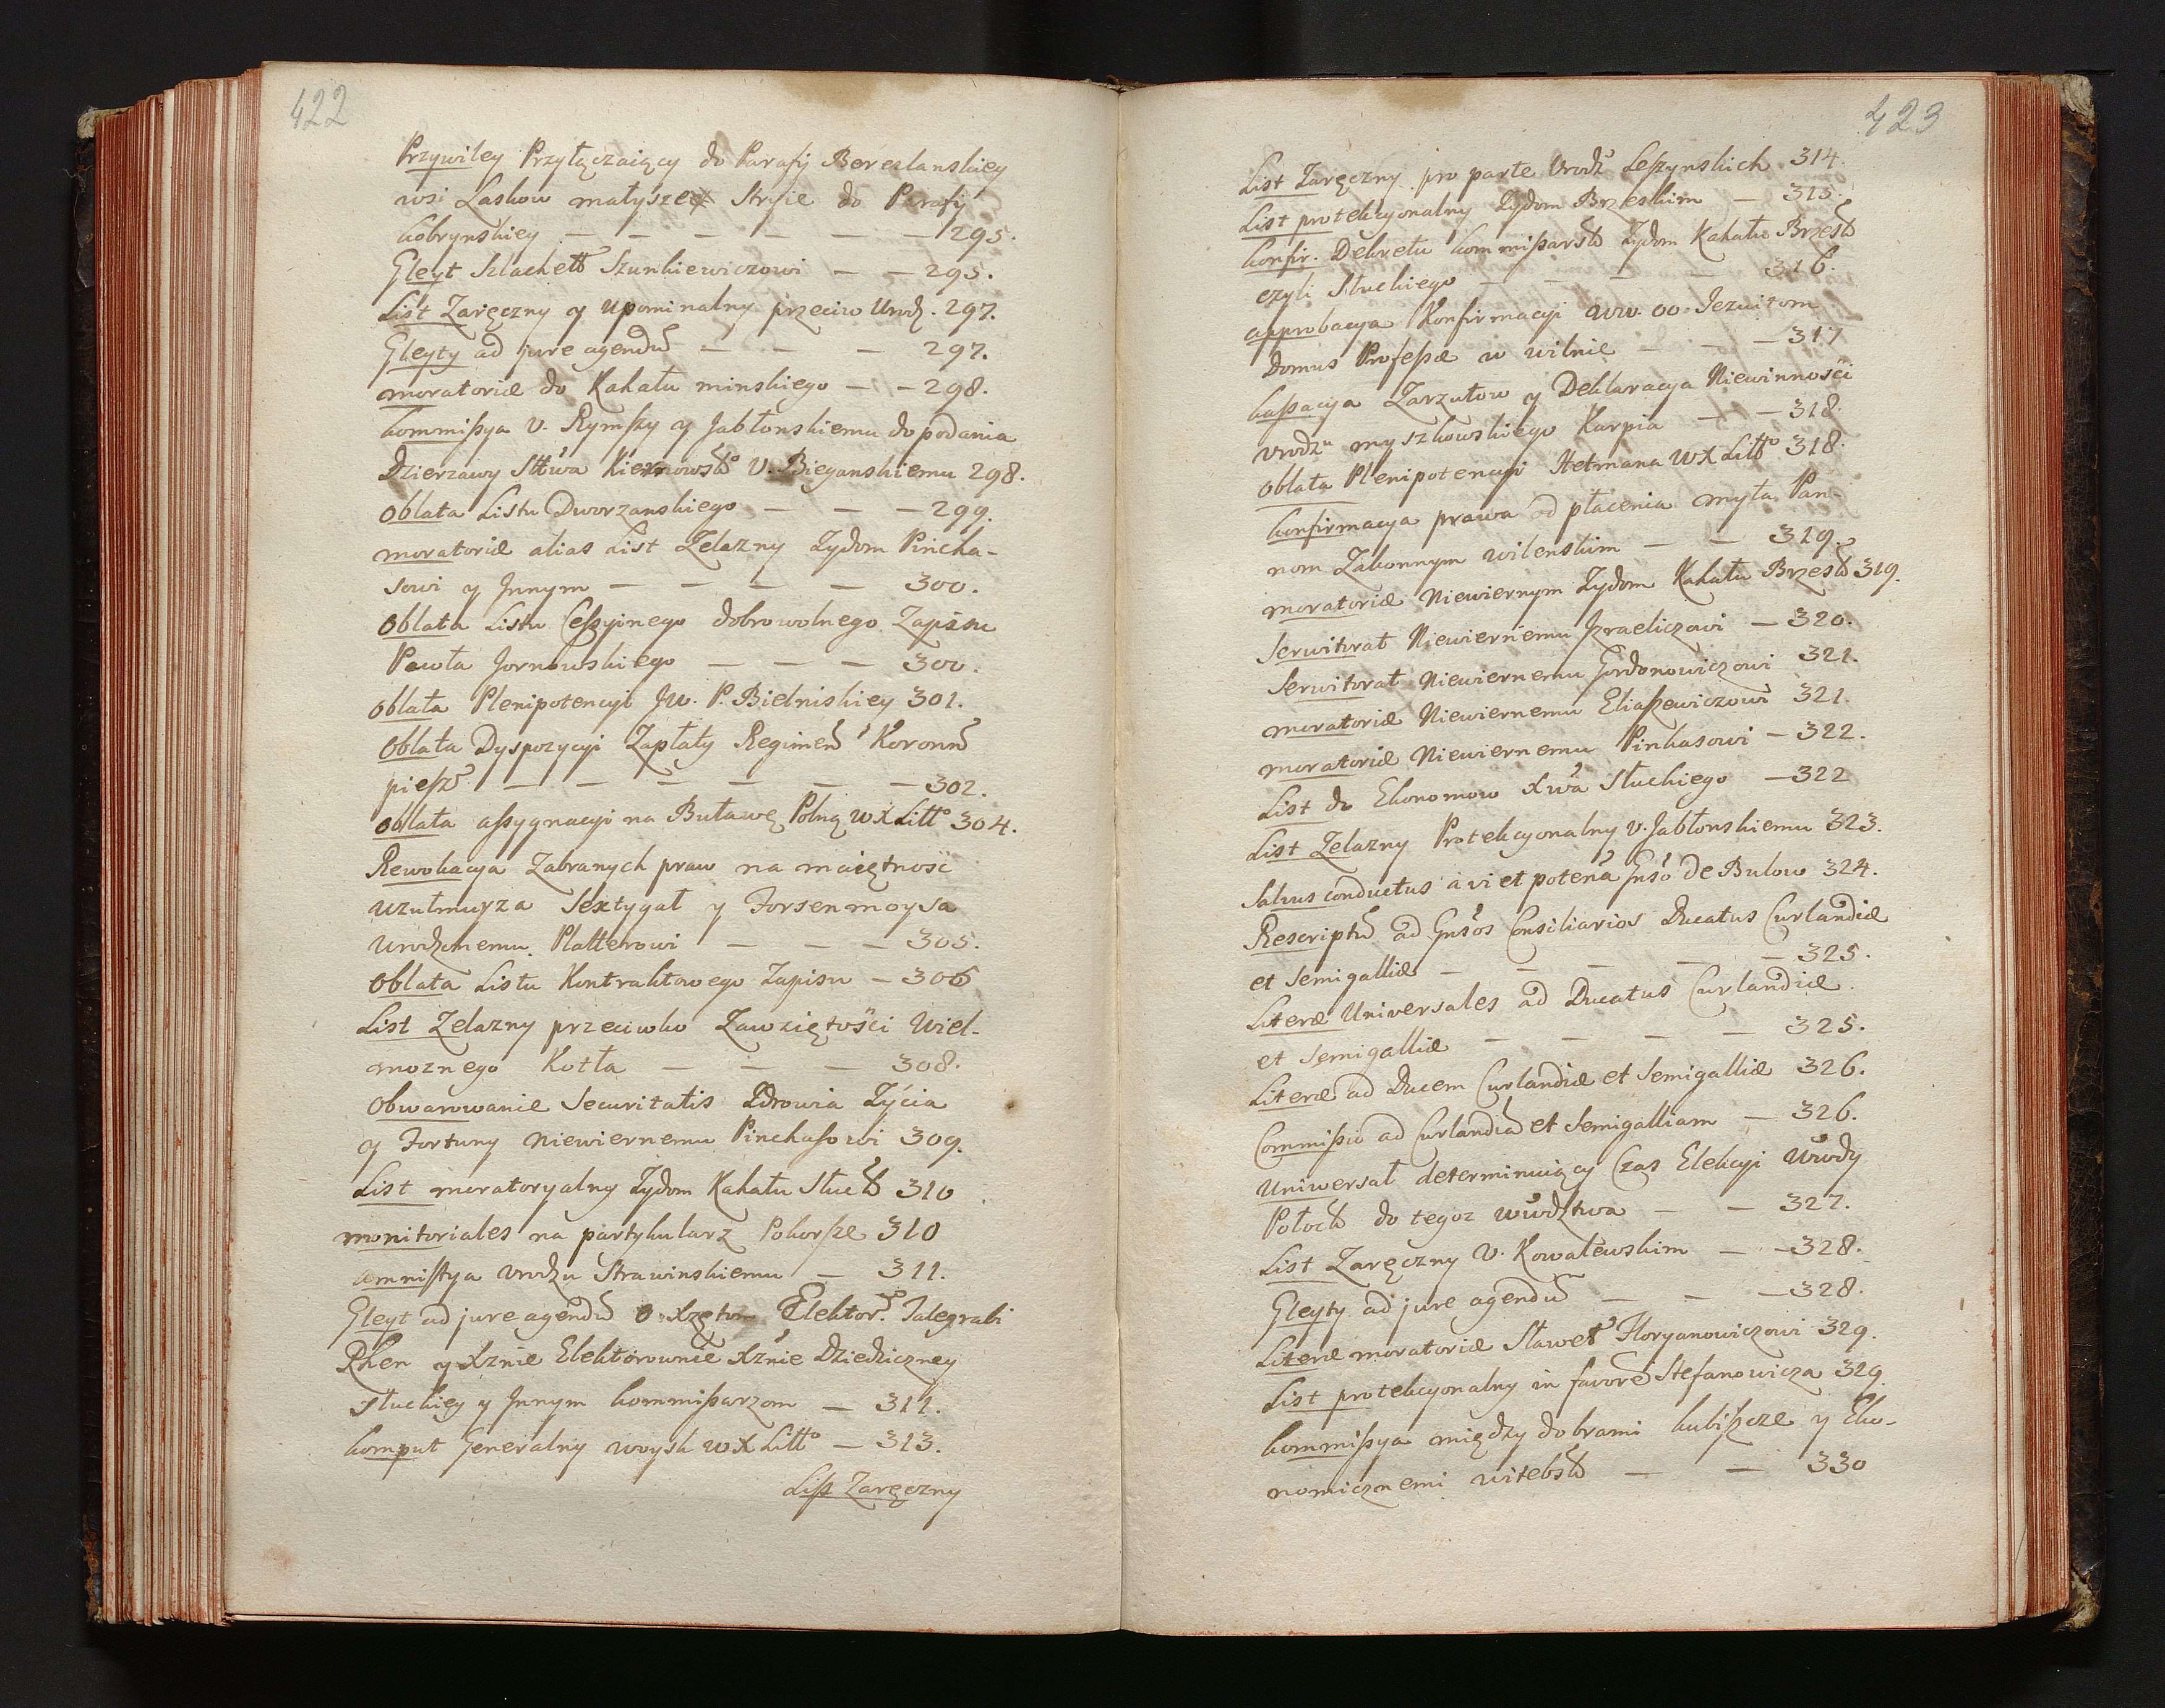 422
Przywiley Przyłączaiący do Parafij Bereslanskiey
wsi Laskow małyszeck Stryie do Parafij
kobrynskiey — — — — — — 295.
Gleyt Szlachett Szunkiewiczowi — — 295.
List Zaręczny y Upominalny przeciw Urodz. 297.
Gleyty ad jure agendu — — — 297.
moratoriæ do Kahału minskiego — — 298.
kommißya U. Rymszy y Jabłonskiemu do podania
Dzierzawy Sttwa U. Bieganskiemu 298.
oblata Listu Dworzanskiego — — — 299.
moratoriæ alias List Zelazny Zydom Pincha-
sowi y Jnnym — — — — 300.
oblata Listu Ceßyinego dobrowolnego Zapisu
Pawła Jornowskiego — — — 300.
oblata Plenipotencyi Jw. P. Bielniskiey 301.
oblata Dyspozycyi Zapłaty Regimen Koronn
pießz — — — — — — 302.
oblata aßygnacyi na Buławę Polną WX Litto 304.
Rewokacya Zabranych praw na maiętność
Uzulmuyza Sextygał y Forsenmoysa
Urodzonemu Platterowi — — — 305.
oblata Listu Kontraktowego Zapisu — 306
List Zelazny przeciwko Zawziętości Wiel-
moznego Kotła — — — 308.
obwarowanie Securitatis Zdrowia Zýcia
y Fortuny Niewiernemu Pinchasowi 309.
List moratoryalny Zydom Kahału Słuck 310
monitoriales na partykularz Pokorsze 310
amnistya Urodzu Strawinskiemu — 311.
Gleyt ad jure agendu o Xzętom Elektor. Palegrabi
Rhen y Xznie Elektorownie Xznie Dziedziczney
Słuckiey y Jnnym kommißarzom — 311.
komput Generalny woysk WX Litto — 313.
Liß Zaręczny
423
List Zaręczny pro parte Urodz Leßzynskich 314.
List protekcyonalny Zydom Brzeskim — 315.
konfir. Dekretu kommißarsk Zydom Kahału Brzesk
czyli Słuckiego — — — — 316.
approbacya Konfirmacyi WW. OO. Jezuitom
Domus Profeßæ w wilnie — — — 317
kaßacya Zarzutow y Deklaracya Niewinności
Urodzu myszkowskiego Karpia — — 318.
oblata Plenipotencyi Hetmana WX Litto 318.
konfirmacya prawa od płacenia myta Pan-
nom Zakonnym wilenskim — — 319.
moratoriæ Niewiernym Zydom Kahału Brzesk 319.
Serwitorat Niewiernemu Jzraeliczowi — 320.
Serwitorat Niewiernemu Gordonowiczowi 321.
moratoriæ Niewiernemu Eliaßewiczowi 321.
moratoriæ Niewiernemu Pinkasowi — 322.
List do Ekonomow Xwa Słuckiego — 322
List Zelazny Protekcyonalny U. Jabłonskiemu 323.
Salvus conductus à vi et potena Gnso De Bulow 324.
Rescriptu ad Gnsos Consiliarios Ducatus Curlandiæ
et Semigalliæ — — — — — 325.
Literæ Universales ad Ducatus Curlandiæ
et Semigalliæ — — — — 325.
Literæ ad Ducem Curlandiæ et Semigalliæ 326.
Commißio ad Curlandia et Semigalliam — 326.
Uniwersał determinuiący Czas Elekcyi Wwody
Połock do tegoz wwdztwa — — 327.
List Zaręczny U. Kowalewskim — — 328.
Gleyty ad jure agendu — — — 328.
Literæ moratoriæ Sławet Floryanowiczowi 329.
List protekcyonalny in favore Stefanowicza 329
kommißya między dobrami kubißcze y Eko-
nomicznemi witebsk — — 330